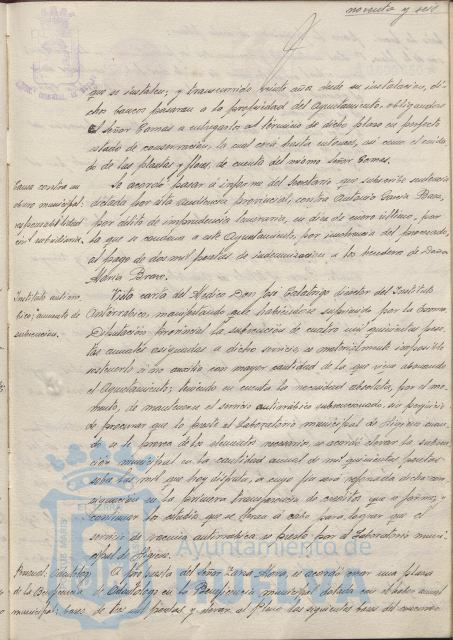 noventa y seis
que se instalen; y transcurrido veinte años desde su instalación, di-
chos bancos pasarán a la propiedad del Ayuntamiento, obligándose
el Señor Comas a entregarlos al término de dicho plazo en perfecto
estado de conservación, la cual será hasta entonces, así como el cuida-
do de las plantas y flores, de cuenta del mismo Señor Comas.
Causa contra un
obrero municipal:
responsabilidad
civil subsidiaria.
Se acordó pasar a informe del Secretario que subscribe sentencia
dictada por esta Audiencia Provincial, contra Antonio García
por delito de imprudencia temeraria, en día de enero último, por
la que se condena a este Ayuntamiento, por insolvencia del procesado,
al pago de dos mil pesetas de indemnización a los herederos de Doña
María Bravo.
Instituto antirrá-
bico; aumento de
subvención.
Vista carta del Médico Don José director del Instituto
Antirrábico, manifestando que habiéndose suprimido por la Excma.
Diputación Provincial la subvención de cuatro mil quinientas pese-
tas anuales asignadas a dicho servicio, es materialmente imposible
sostenerlo si no cuenta con mayor cantidad de la que viene abonando
el Ayuntamiento; teniendo en cuenta la necesidad absoluta, por el mo-
mento, de mantener el servicio antirrábico subvencionado, sin perjuicio
de procurar que lo preste el Laboratorio municipal de Higiene cuan-
do se le provea de los elementos necesarios, se acordó elevar la subven-
ción municipal en la cantidad anual de mil quinientas pesetas
sobre las mil que hoy disfruta, a cuyo fin será reforzada dicha con-
signación en la primera transferencia de créditos que se forme, y
continuar los estudios que se llevan a cabo para lograr que el
servicio de vacuna antirrábica se preste por el Laboratorio muni-
cipal de Higiene.
Odontólogo
de la Beneficencia
municipal: bases
A propuesta del Señor Mora, se acordó crear una plaza
de Odontólogo en la Beneficencia municipal dotada con el haber anual
de mil pesetas, y elevar al Pleno las siguientes bases del concurso
Ayuntamiento de